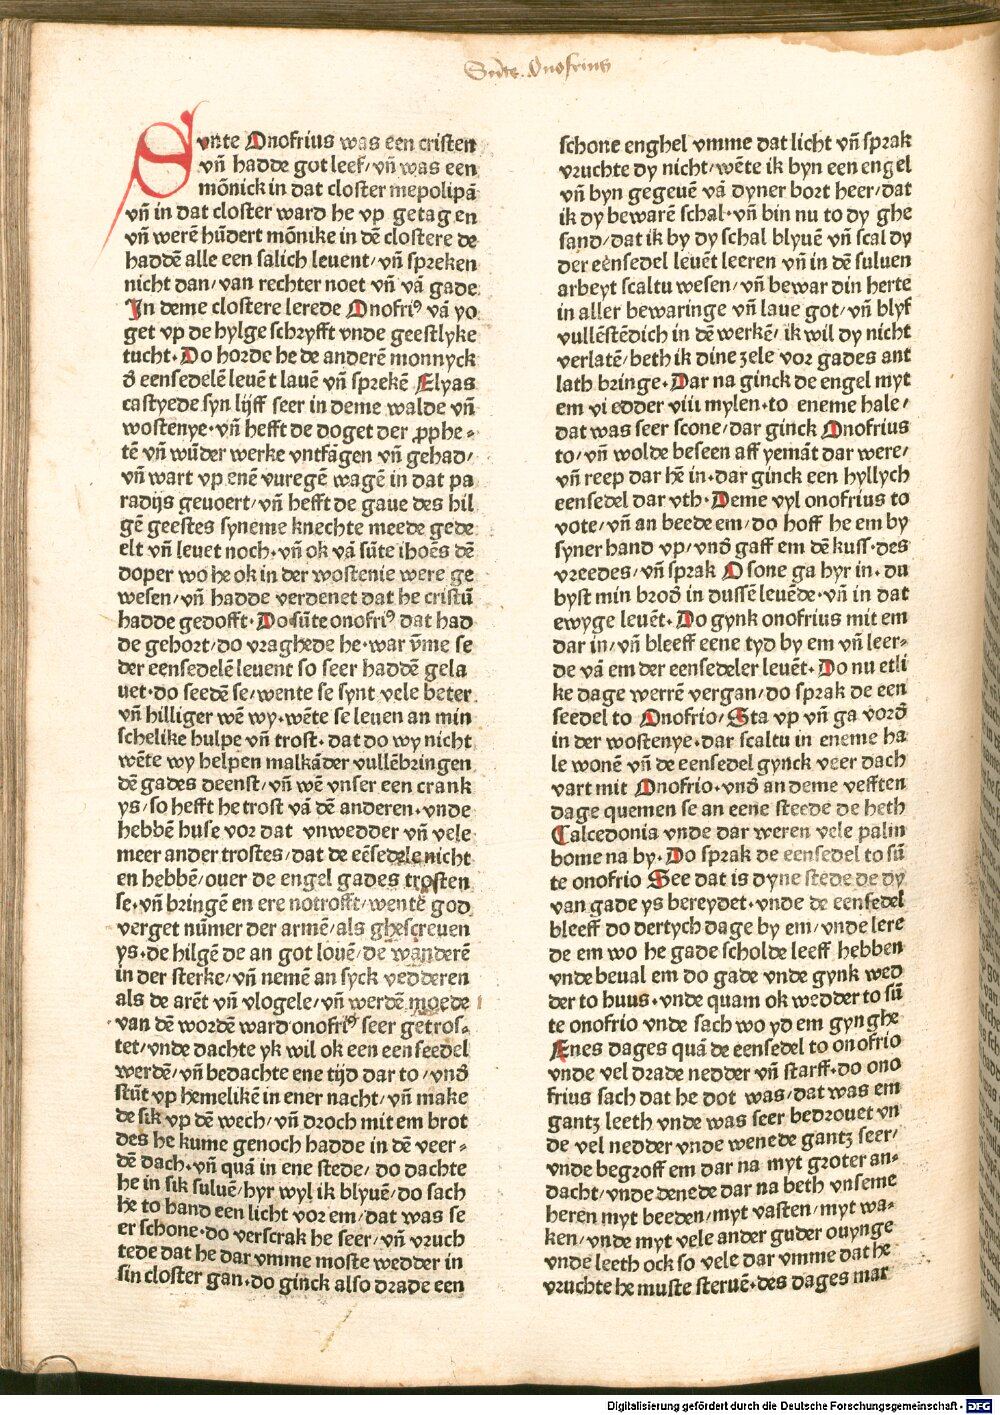 Sncts. Onofrius
Sunte Onofrius was een cristen
vñ hadde got leef/vñ was een
mõnick in dat closter mepolipã
vñ in dat closter ward he vp getagen
vñ werē hūdert mõnike in dē clostere de
haddē alle een salich leuent/vñ spreken
nicht dan/van rechter noet vñ vā gade.
In deme clostere lerede Onofriꝰ vā yo
get vp de hylge schryfft vnde geestlyke
tucht. Do horde he de anderē monnyck
d̄ eensedelē leuēt lauē vñ sprekē Elyas
castyede syn lijff seer in deme walde vñ
wostenye. vñ hefft de doget der ꝓphe-
tē vñ wūder werke vntfāgen vñ gehad/
vñ wart vp enē vuregē wagē in dat pa
radijs geuoert/vñ hefft de gaue des hil
gē geestes syneme knechte meede gede
elt vñ leuet noch. vñ ok vā sūte ihoēs dē
doper wo he ok in der wostenie were ge
wesen/vñ hadde verdenet dat he cristū
hadde gedofft. Do sūte onofriꝰ dat had
de gehort/do vraghede he. war v̄me se
der eensedelē leuent so seer haddē gela
uet. do seedē se/wente se synt vele beter
vñ hilliger wē wy. wēte se leuen an min
schelike hulpe vñ trost. dat do wy nicht
wēte wy helpen malkāder vullēbringen
dē gades deenst/vñ wē vnser een crank
ys/so hefft he trost vā dē anderen. vnde
hebbē huse vor dat vnwedder vñ vele
meer ander trostes/dat de eēsedele nicht
en hebbē/ouer de engel gades trosten
se. vñ bringē en ere notrofft/wente god
verget nūmer der armē/als ghescreuen
ys. de hilgē de an got louē/de wanderē
in der sterke/vñ nemē an syck vedderen
als de arēt vñ vlogele/vñ werdē moede
van dē wordē ward onofriꝰ seer getros-
tet/vnde dachte yk wil ok een eenseedel
werdē/vñ bedachte ene tijd dar to/vnd̄
stūt vp hemelikē in ener nacht/vñ make
de sik vp dē wech/vñ droch mit em brot
des he kume genoch hadde in dē veer-
dē dach. vñ quā in ene stede/do dachte
he in sik suluē/hyr wyl ik blyuē/do sach
he to hand een licht vor em/dat was se
er schone. do verscrak he seer/vñ vruch
tede dat he dar vmme moste wedder in
sin closter gan. do ginck also drade een
schone enghel vmme dat licht vñ sprak
vruchte dy nicht/wēte ik byn een engel
vñ byn gegeuē vā dyner bort heer/dat
ik dy bewarē schal. vñ bin nu to dy ghe
sand/dat ik by dy schal blyuē vñ scal dy
der eēnsedel leuēt leeren vñ in dē suluen
arbeyt scaltu wesen/vñ bewar din herte
in aller bewaringe vñ laue got/vñ blyf
vullēstēdich in dē werkē/ik wil dy nicht
verlatē/beth ik dine zele vor gades ant
lath bringe. Dar na ginck de engel myt
em vi edder viii mylen. to eneme hale/
dat was seer scone/dar ginck Onofrius
to/vñ wolde beseen aff yemāt dar were/
vñ reep dar hē in. dar ginck een hyllych
eensedel dar vth. Deme vyl onofrius to
vote/vñ an beede em/do hoff he em by
syner hand vp/vnd̄ gaff em dē kuss. des
vreedes/vñ sprak O sone ga hyr in. du
byst min brod̄ in dussē leuēde. vñ in dat
ewyge leuēt. Do gynk onofrius mit em
dar in/vñ bleeff eene tyd by em vñ leer-
de vā em der eensedeler leuēt. Do nu etli
ke dage werrē vergan/do sprak de een
seedel to Onofrio/Sta vp vñ ga vord̄
in der wostenye. dar scaltu in eneme ha
le wonē vñ de eensedel gynck veer dach
vart mit Onofrio. vnd̄ an deme vefften
dage quemen se an eene steede de heth
Calcedonia vnde dar weren vele palm
bome na by. Do sprak de eensedel to sū
te onofrio See dat is dyne stede de dy
van gade ys bereydet. vnde de eensedel
bleeff do dertych dage by em/vnde lere
de em wo he gade scholde leeff hebben
vnde beual em do gade vnde gynk wed
der to huus. vnde quam ok wedder to sū
te onofrio vnde sach wo yd em gynghe
Aenes dages quā de eensedel to onofrio
vnde vel drade nedder vñ starff. do ono
frius sach dat he dot was/dat was em
gantz leeth vnde was seer bedrouet vn
de vel nedder vnde wenede gantz seer/
vnde begroff em dar na myt groter an-
dacht/vnde denede dar na beth vnseme
heren myt beeden/myt vasten/myt wa-
ken/vnde myt vele ander guder ouynge
vnde leeth ock so vele dar vmme dat he
vruchte he muste steruē. des dages mar
Digitalisierung gefördert durch die Deutsche Forschungsgemeinschaft - DFG